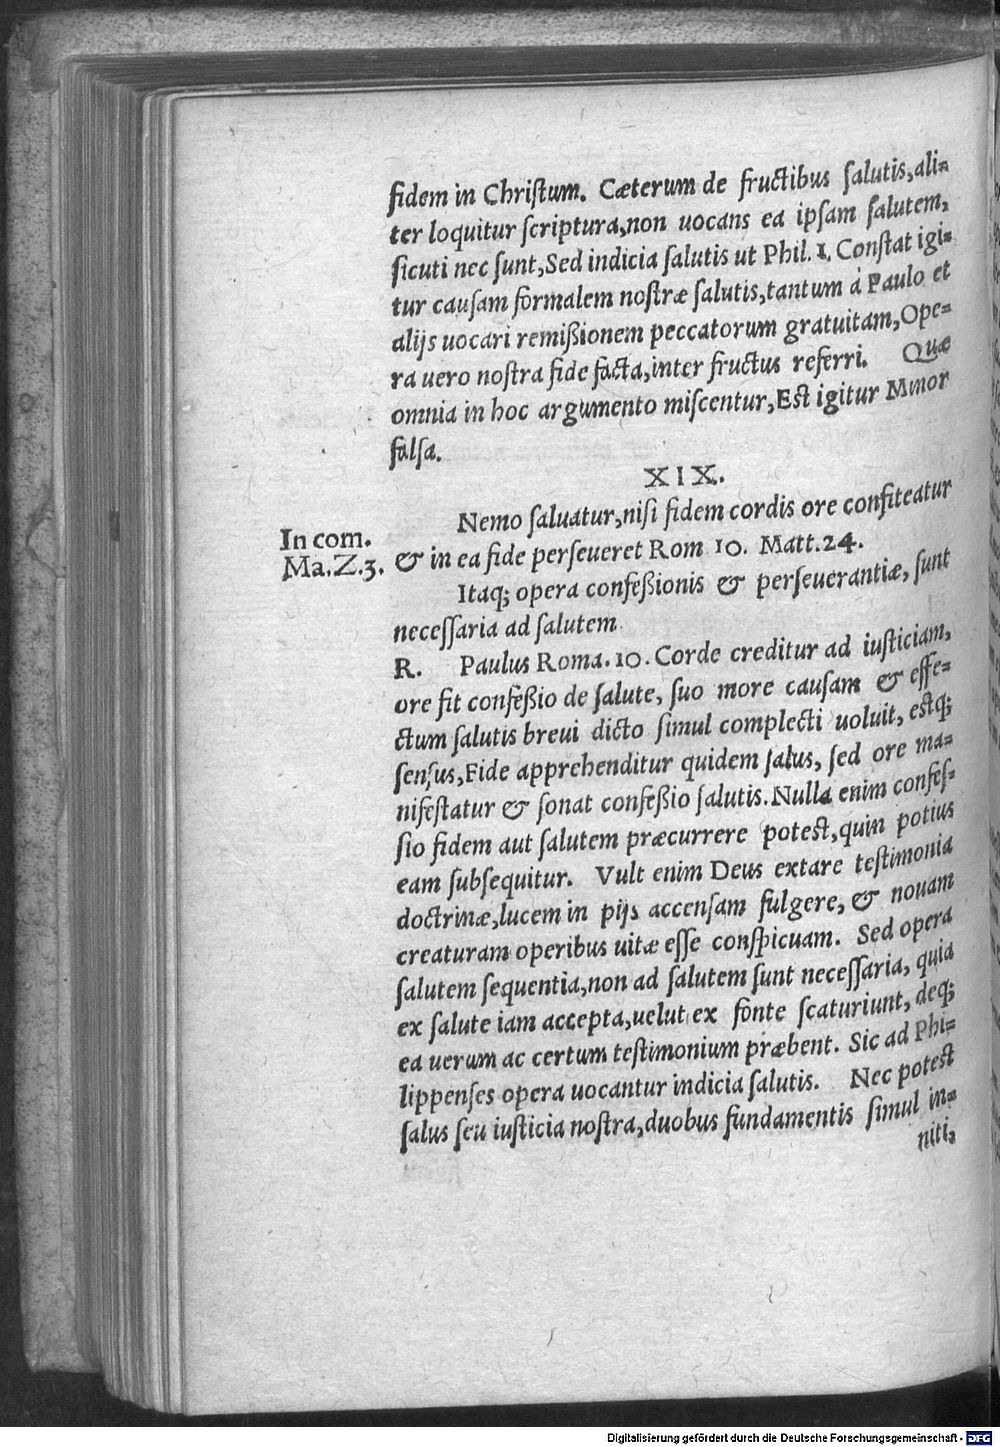 fidem in Chriſtum. Cæterum de fructibus ſalutis, ali=
ter loquitur ſcriptura, non uocans ea ipſam ſalutem,
ſicuti nec ſunt, Sed indicia ſalutis ut Phil. 1. Conſtat igi=
tur cauſam formalem noſtræ ſalutis, tantum à Paulo et
alijs uocari remißionem peccatorum gratuitam, Ope=
ra uero noſtra fide facta, inter fructus referri. Quæ
omnia in hoc argumento miſcentur, Eſt igitur Minor
falſa.
XIX.
Nemo ſaluatur, niſi fidem cordis ore confiteatur
In com.
Ma. Z. 3.
& in ea fide perſeueret Rom 10. Matt. 24.
Itaq; opera confeßionis & perſeuerantiæ, ſunt
neceſſaria ad ſalutem.
R. Paulus Roma. 10. Corde creditur ad iuſticiam,
ore fit confeßio de ſalute, ſuo more cauſam & effe=
ctum ſalutis breui dicto ſimul complecti uoluit, eſtq;
ſenſus, Fide apprehenditur quidem ſalus, ſed ore ma=
nifeſtatur & ſonat confeßio ſalutis. Nulla enim confeſ=
ſio fidem aut ſalutem præcurrere poteſt, quin potius
eam ſubſequitur. Vult enim Deus extare teſtimonia
doctrinæ, lucem in pijs accenſam fulgere, & nouam
creaturam operibus uitæ eſſe conſpicuam. Sed opera
ſalutem ſequentia, non ad ſalutem ſunt neceſſaria, quia
ex ſalute iam accepta, uelut ex fonte ſcaturiunt, deq;
ea uerum ac certum teſtimonium præbent. Sic ad Phi=
lippenſes opera uocantur indicia ſalutis. Nec poteſt
ſalus ſeu iuſticia noſtra, duobus fundamentis ſimul in=
niti,
Digitalisierung gefördert durch die Deutsche Forschungsgemeinschaft - DFG